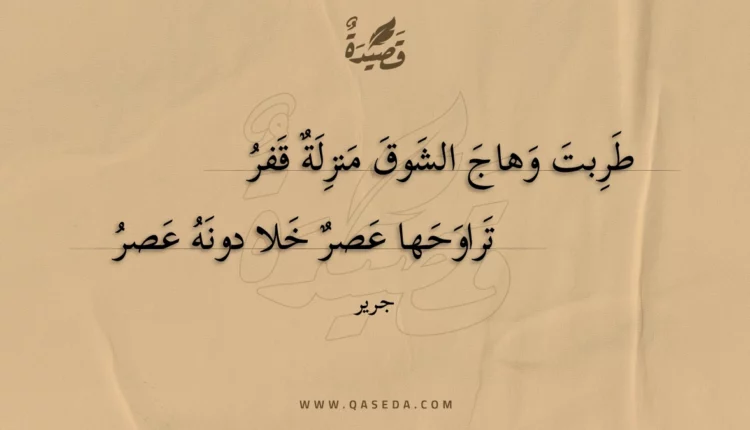 قَصِيْدَةٌ
طَرِبتَ وَهاجَ الشَوقَ مَنزِلَةٌ قَفرُ
تَراوَحَها عَصرٌ خَلا دونَهُ عَصرُ
جرير
WWW.QASEDA.COM